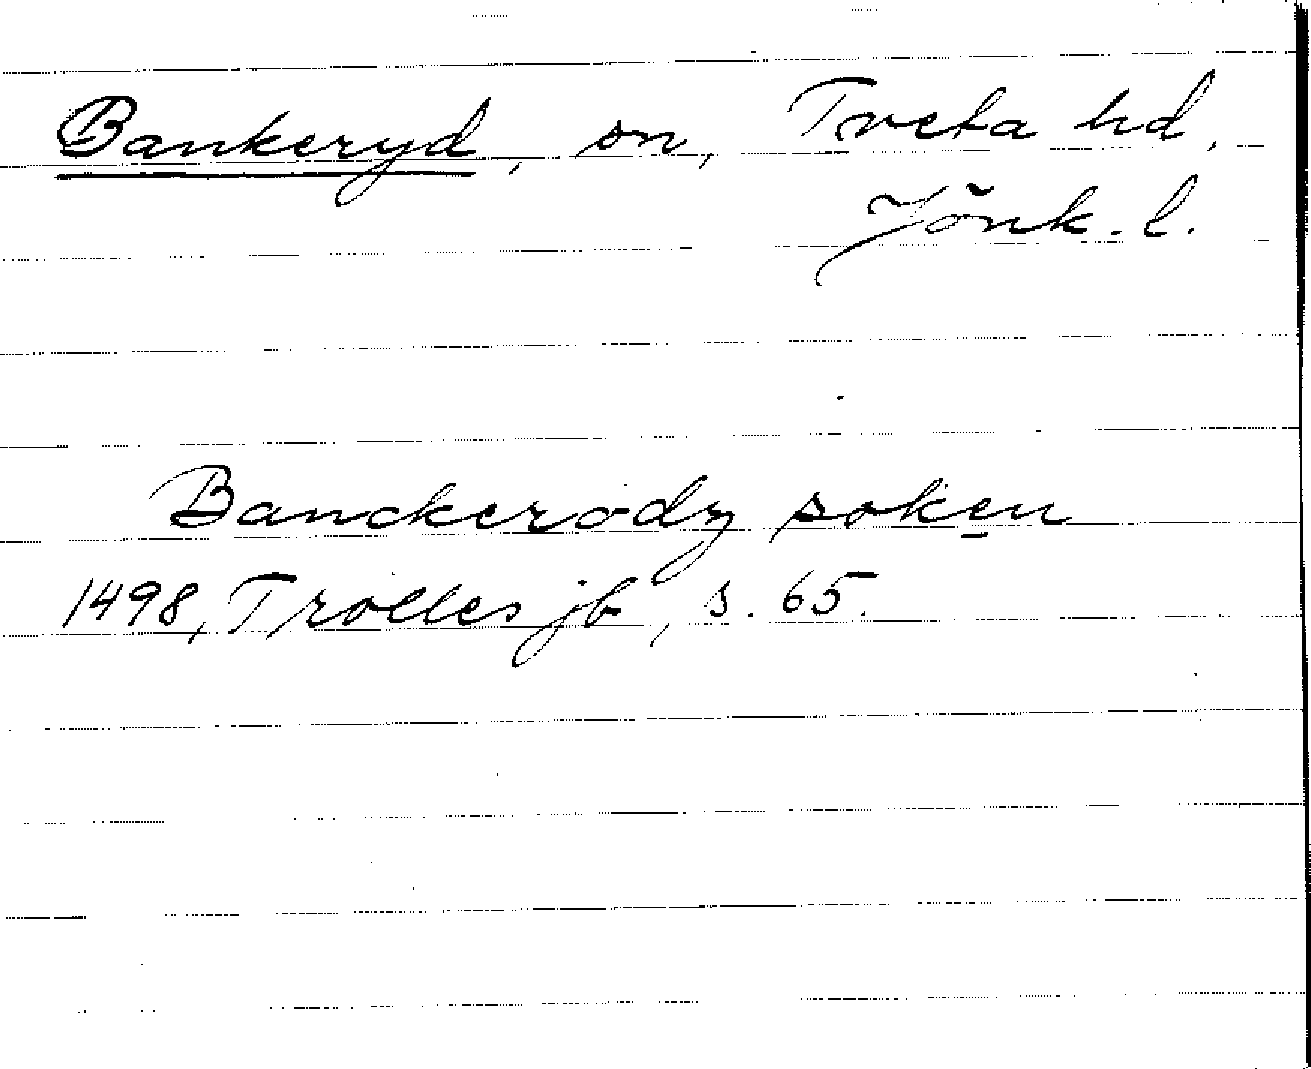 Bankeryd, sn, Tveta hd,
Jönk. l.
Banckerødz soken
1498, Trolles jb, s. 65.